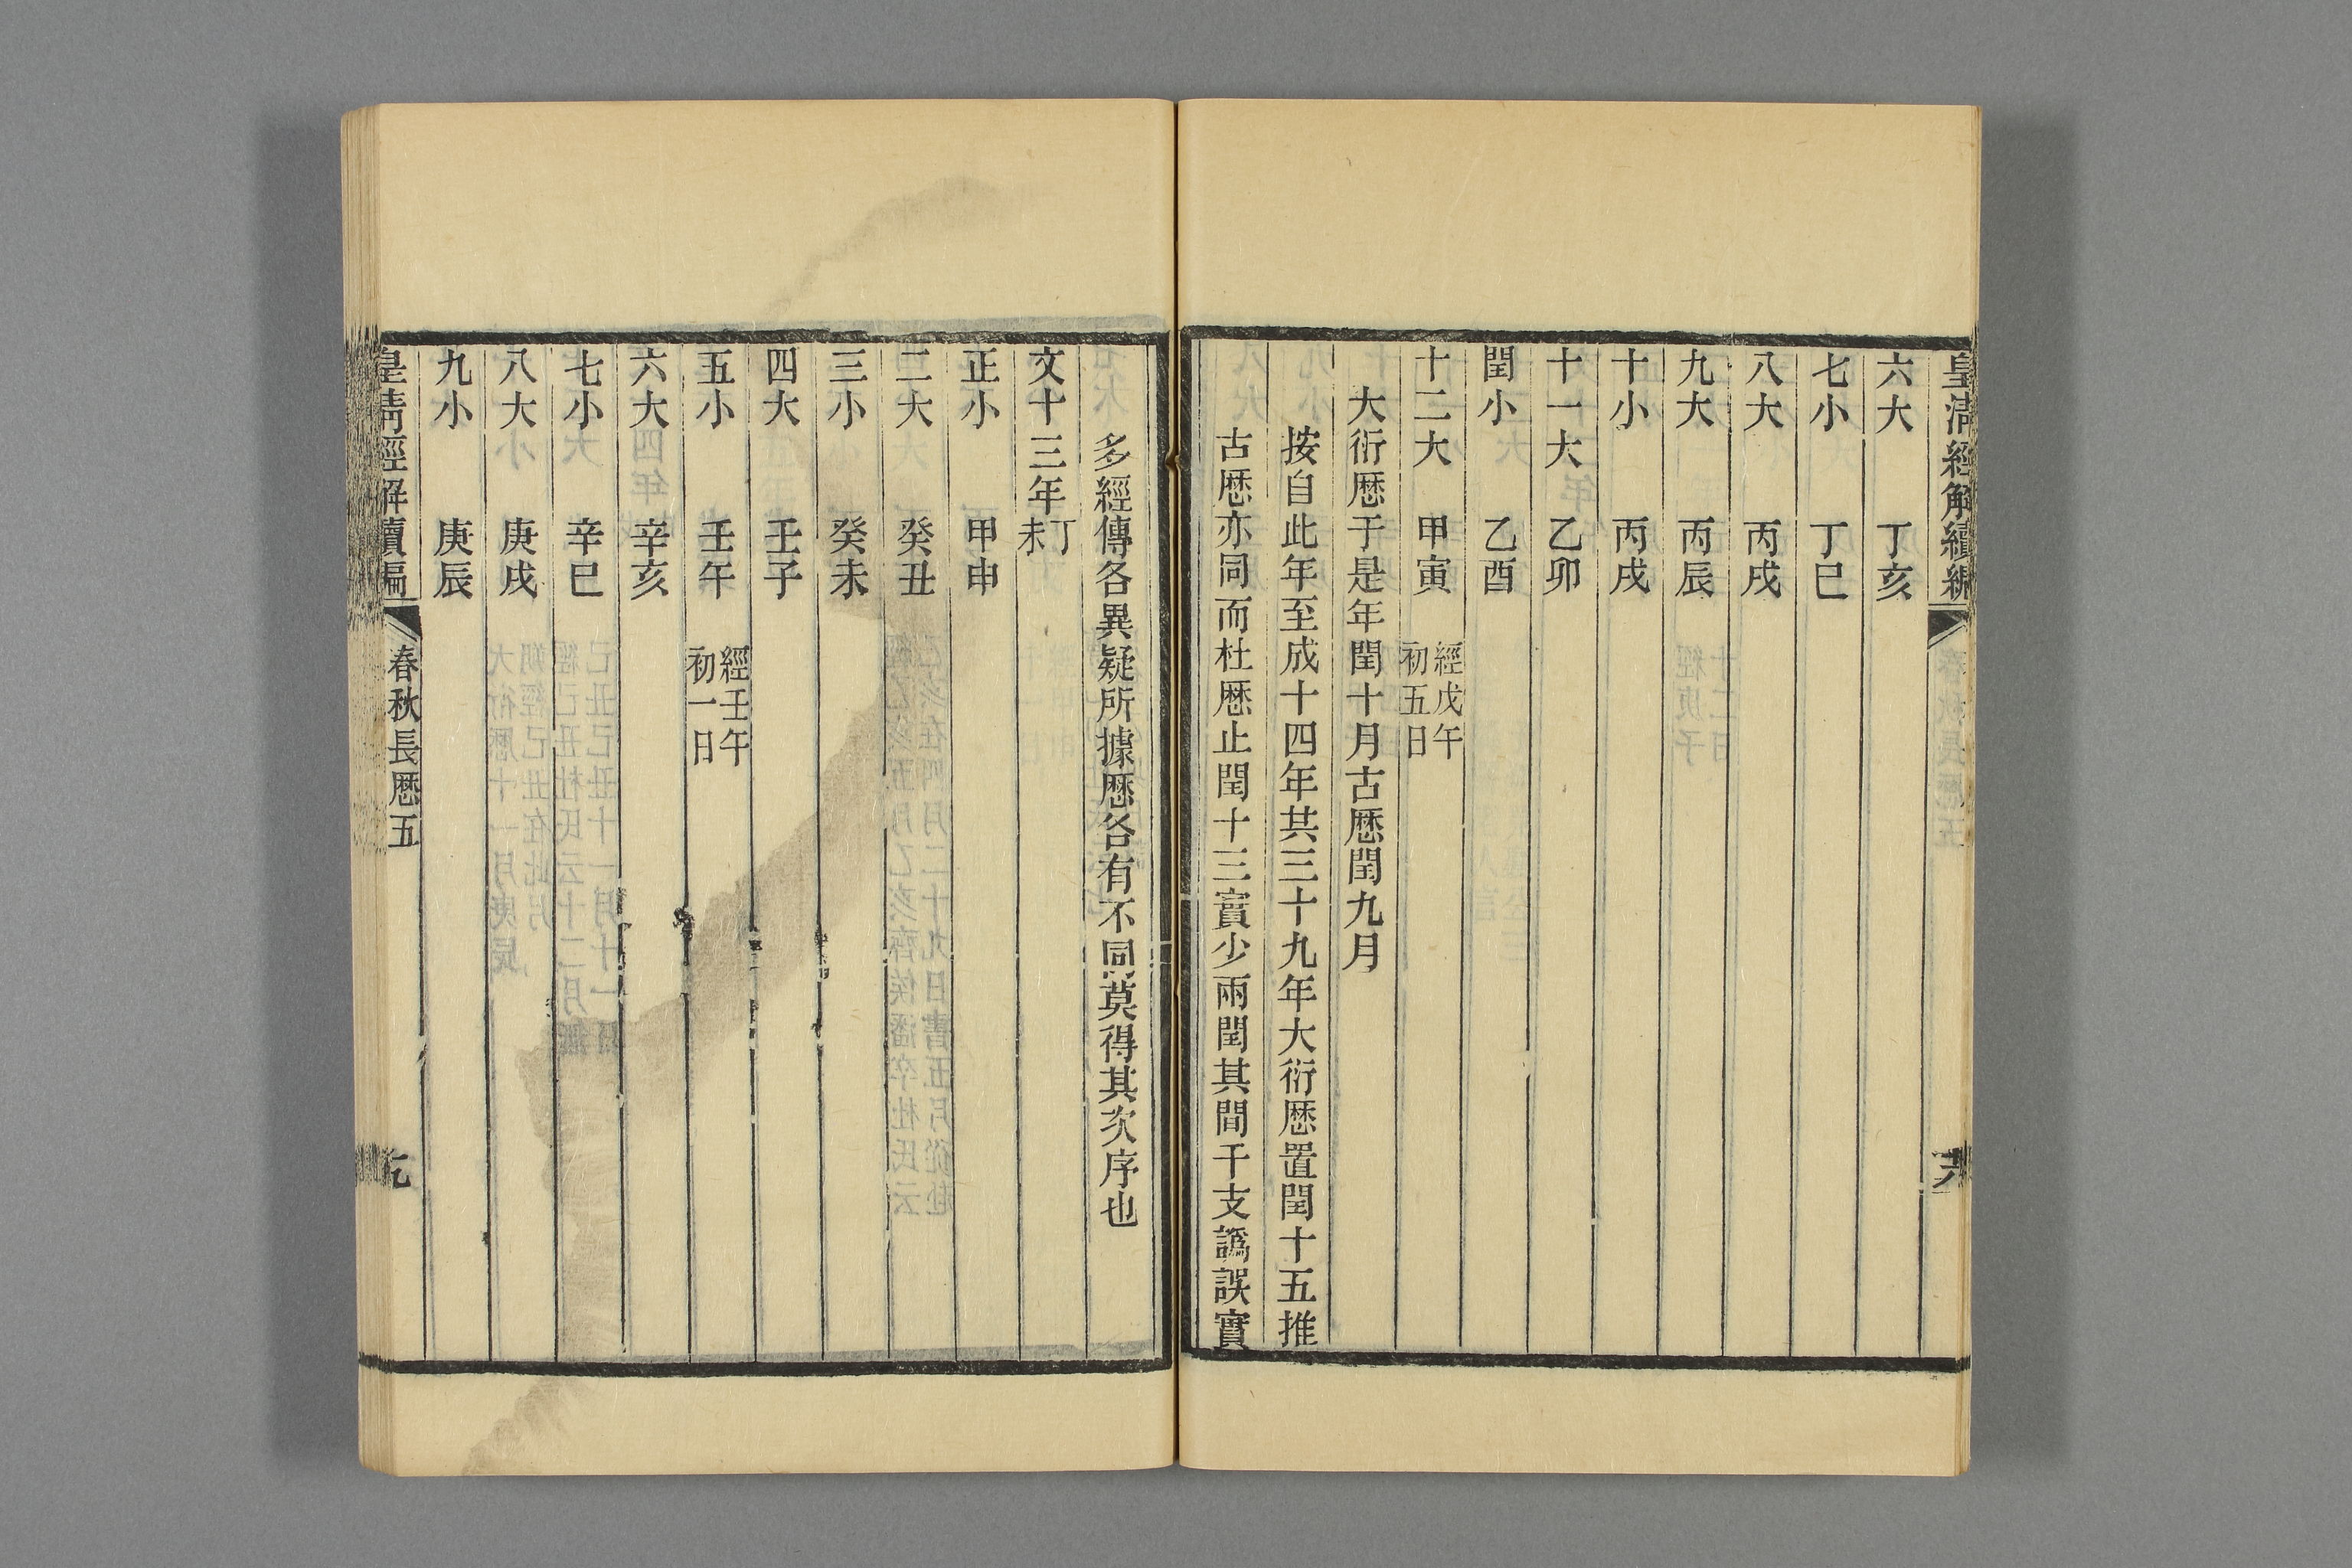 皇清經解續編
六大　丁亥
七小　丁巳
八大　丙戌
九大　丙辰
十小　丙戌
十一大　乙卯
閏小　乙酉
十二大　甲寅　經戊午初五日
大衍厯于是年閏十月古厯閏九月
按自此年至成十四年共三十九年大衍厯置閏十五推
古厯亦同而杜厯止閏十三實少兩閏其間干支譌誤實
多經傳各異疑所據厯各有不同莫得其次序也
文十三年丁未
正小　甲申
二大　癸丑
三小　癸未
四大　壬子
五小　壬午　經壬午初一日
六大　辛亥
七小　辛巳
八大　庚戌
九小　庚辰
皇清經解續編　春秋長厯五